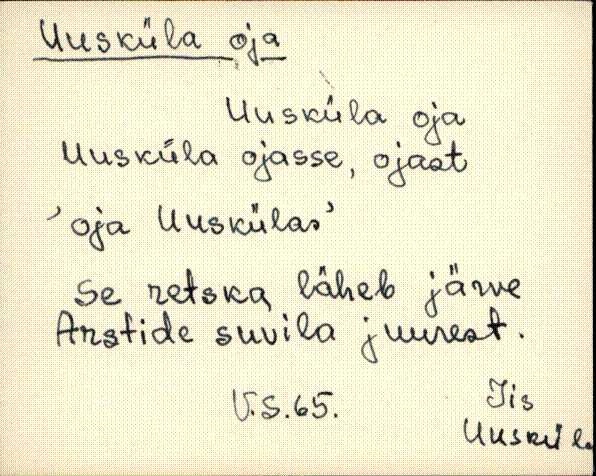 Uusküla oja
Uusküla oja
Uusküla ojasse, ojast
'oja Uuskülas'
Se retska läheb järve
Arstide suvila juurest.
V.S.65.
Iis
Uuskül